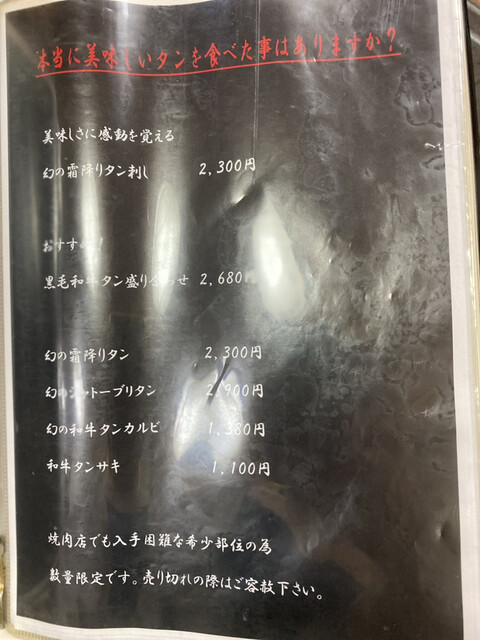 本当に美味しいタンを食べた事はありますか？
美味しさに感動を覚える
幻の霜降りタン刺し 2,300円
おすすめ！
黒毛和牛タン盛り合わせ 2,680円
幻の霜降りタン 2,300円
幻のシャトーブリタン 2,900円
幻の和牛タンカルビ 1,380円
和牛タンサキ 1,100円
焼肉店でも入手困難な希少部位の為
数量限定です。売り切れの際はご容赦下さい。